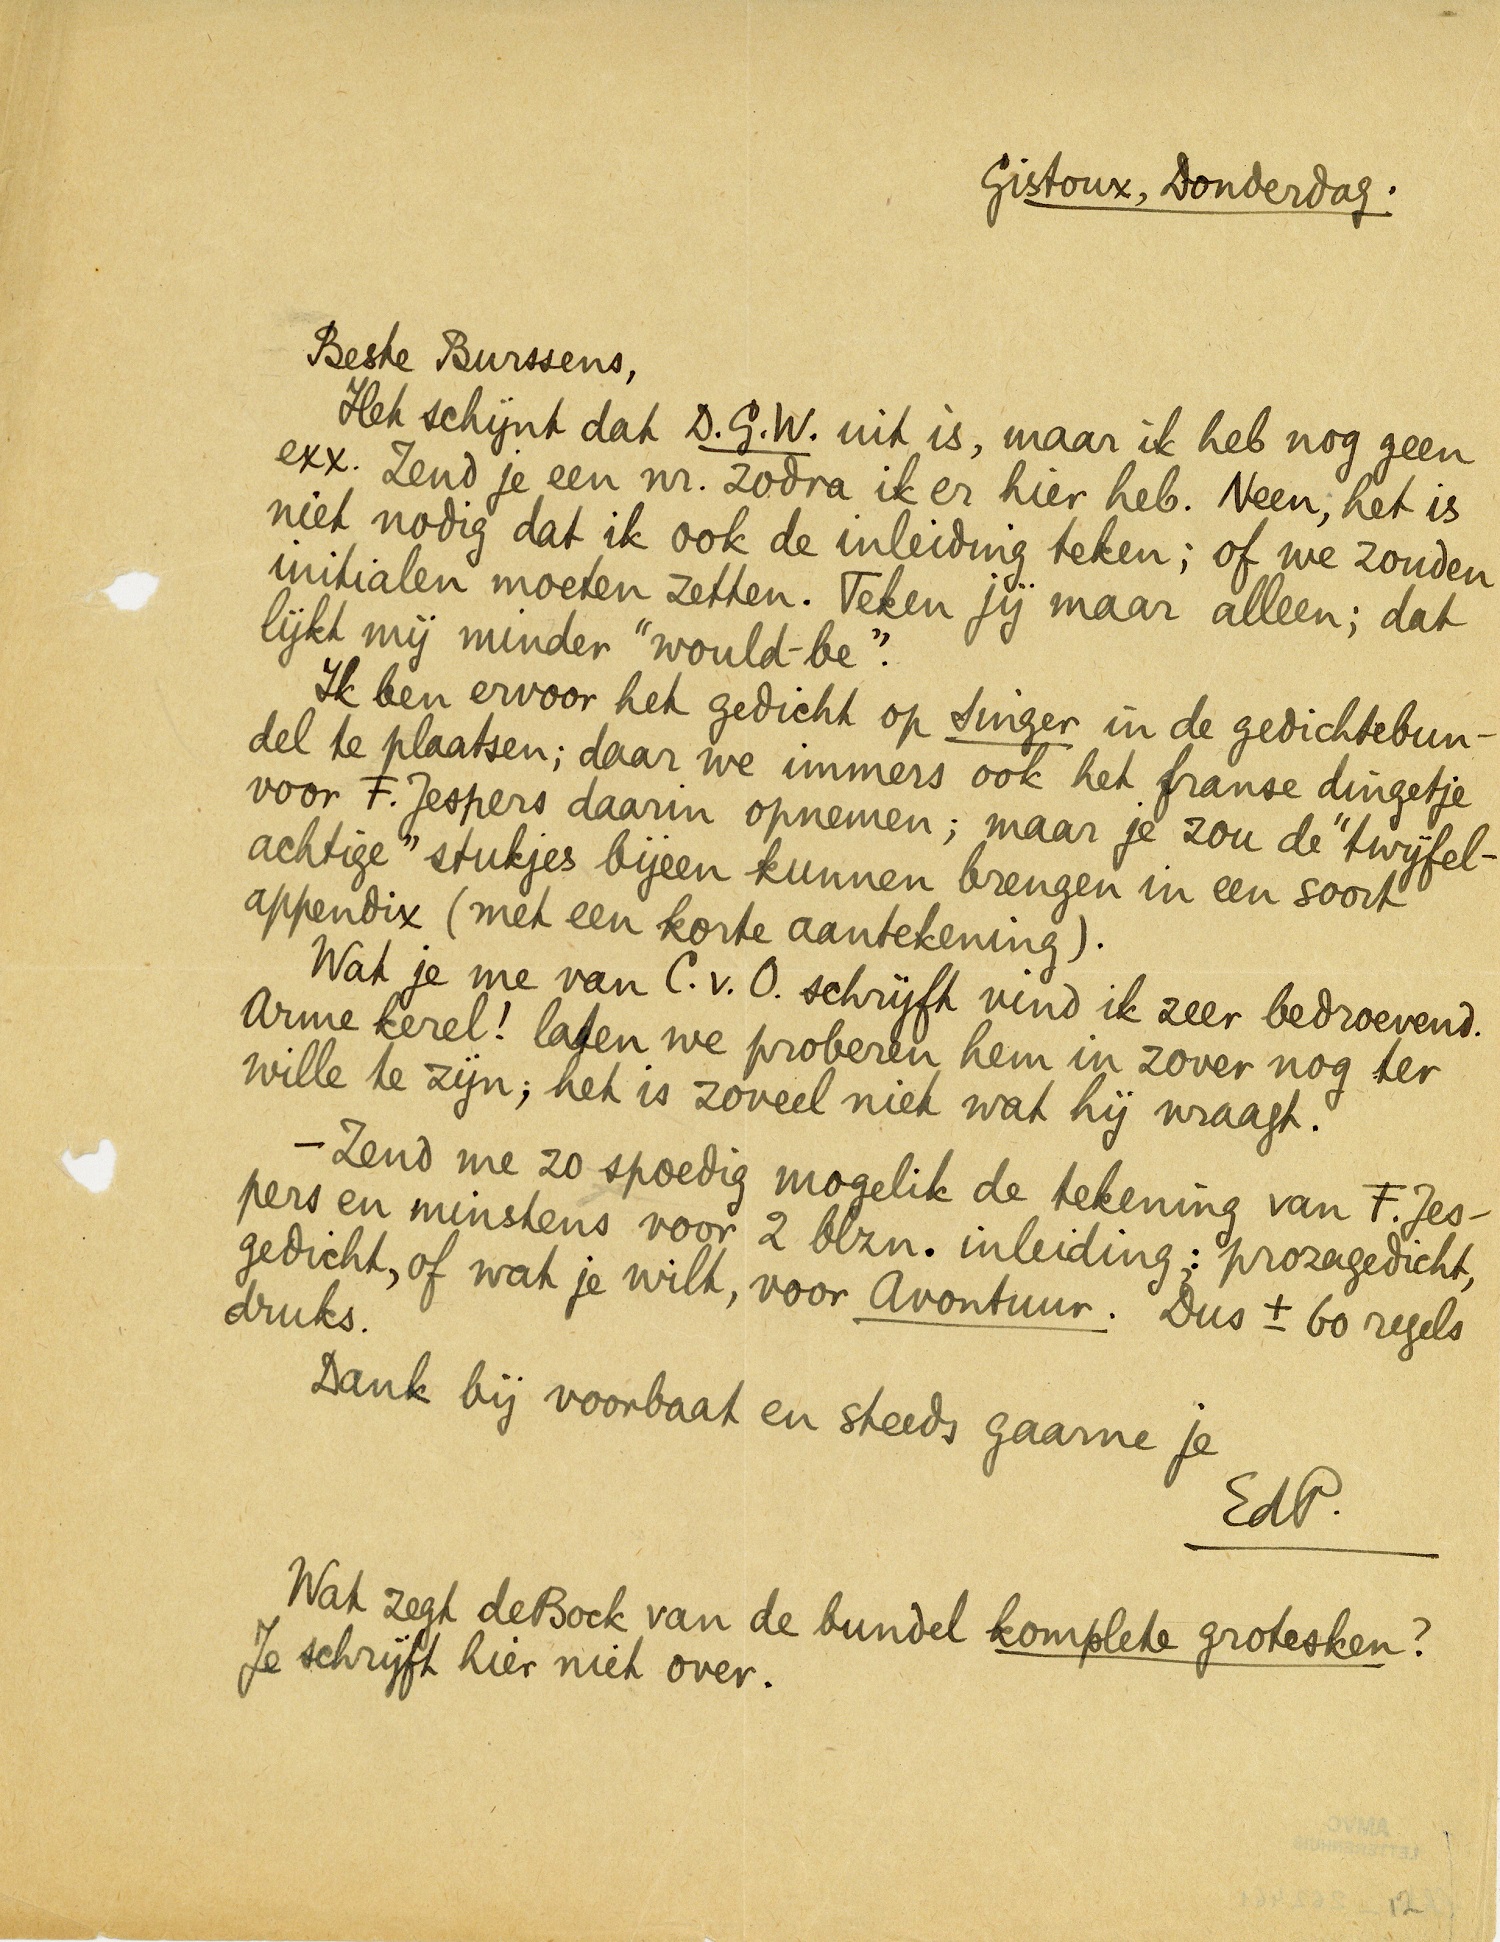 Gistoux, Donderdag.
Beste Burssens,
Het schijnt dat D.G.W. uit is, maar ik heb nog geen
exx. Zend je een nr. zodra ik er hier heb. Neen, het is
niet nodig dat ik ook de inleiding teken; of we zouden
initialen moeten zetten. Teken jij maar alleen; dat
lijkt mij minder "would-be".
Ik ben ervoor het gedicht op Singer in de gedichtebun-
del te plaatsen; daar we immers ook het franse dingetje
voor F. Jespers daarin opnemen; maar je zou de "twijfel-
achtige" stukjes bijeen kunnen brengen in een soort
appendix (met een korte aantekening).
Wat je me van C. v. O. schrijft vind ik zeer bedroevend.
Arme kerel! laten we proberen hem in zover nog ter
wille te zijn; het is zoveel niet wat hij vraagt.
— Zend me zo spoedig mogelik de tekening van F. Jes-
pers en minstens voor 2 blzn. inleiding; prozagedicht,
gedicht, of wat je wilt, voor Avontuur. Dus ± 60 regels
druks.
Dank bij voorbaat en steeds gaarne je
EdP.
Wat zegt deBock van de bundel komplete grotesken?
Je schrijft hier niet over.
12